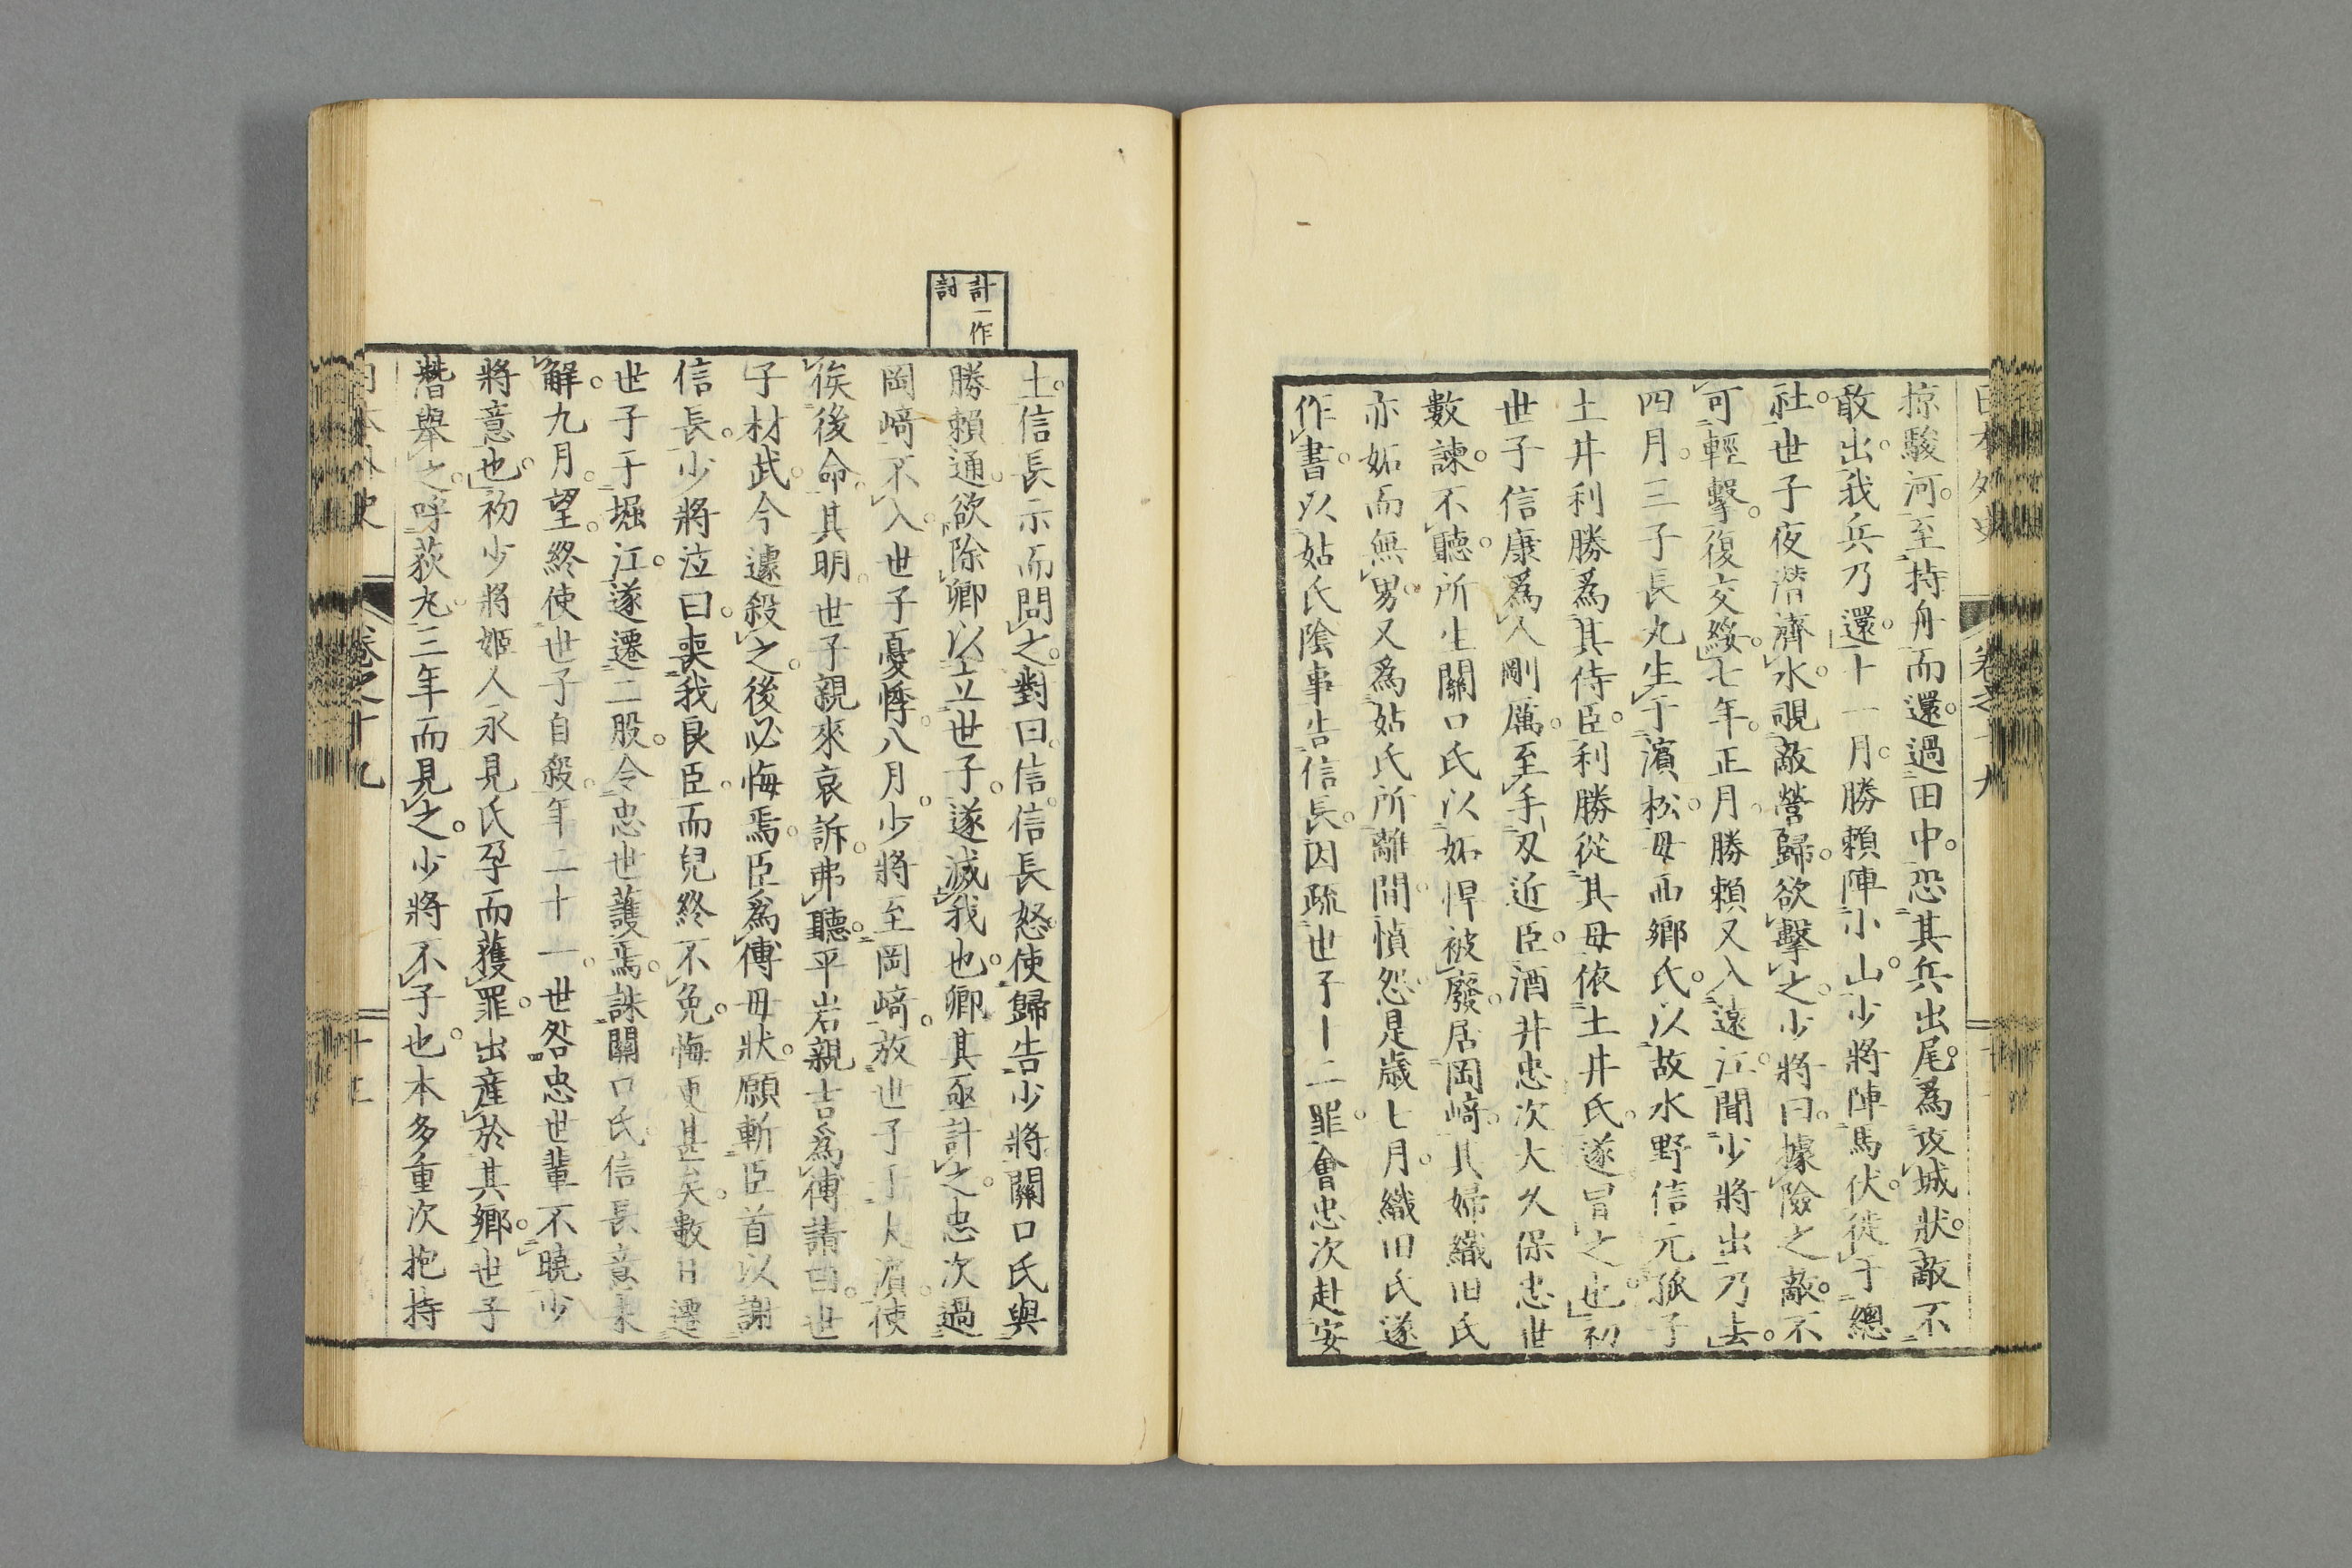 日本外史 卷之十九
掠駿河。至持舟而還。過田中。恐其兵出尾。爲攻城狀。敵不
敢出。我兵乃還。十一月。勝賴陣小山。少將陣馬伏。徙于總
社。世子夜濳濟水。覘敵營歸。欲擊之。少將曰。據險之敵。不
可輕擊。復交綏。七年。正月。勝賴又入遠江。聞少將出乃去。
四月。三子長丸生于濱松。母西鄉氏。以故水野信元孤子
土井利勝爲其侍臣。利勝從其母依土井氏。遂冒之也。初
世子信康爲人剛厲。至手刃近臣。酒井忠次大久保忠世
數諫。不聽。所生關口氏以妬悍被廢。居岡﨑。其婦織田氏
亦妬而無男。又爲姑氏所離間。憤怨。是歲七月。織田氏遂
作書。以姑氏陰事告信長。因疏世子十二罪。會忠次赴安
土。信長示而問之。對曰。信。信長怒。使歸告少將。關口氏與
勝賴通。欲除卿以立世子。遂滅我也。卿其亟計之。忠次過
岡﨑。不入。世子憂悸。八月。少將至岡﨑。放世子于大濱。使
俟後命。其明。世子親來哀訴。弗聽。平岩親吉爲傅。請曰。世
子材武。今遽殺之。後必悔焉。臣爲傅毋狀。願斬臣首以謝
信長。少將泣曰。喪我良臣。而兒終不免。悔更甚矣。數日遷
世子于堀江。遂遷二股。令忠世護焉。誅關口氏。信長意未
解。九月。望。終使世子自殺。年二十一。世咎忠世輩不曉少
將意也。初少將姬人永見氏孕而獲罪。出產於其鄉。世子
濳舉之。呼荻丸。三年而見之。少將不子也。本多重次抱持
計一作
討
日本外史 卷之十九